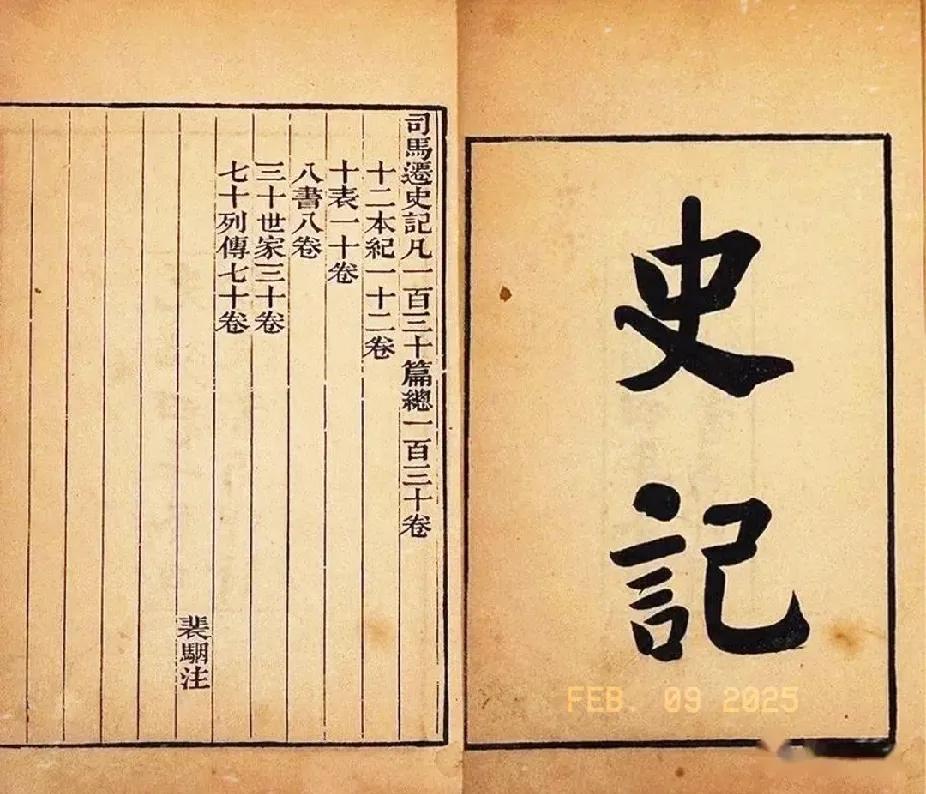 史記
司馬遷史記凡一百三十篇總一百三十卷
十二本紀一十二卷
十表一十卷
八書八卷
三十世家三十卷
七十列傳七十卷
裴駰注
FEB. 09 2025